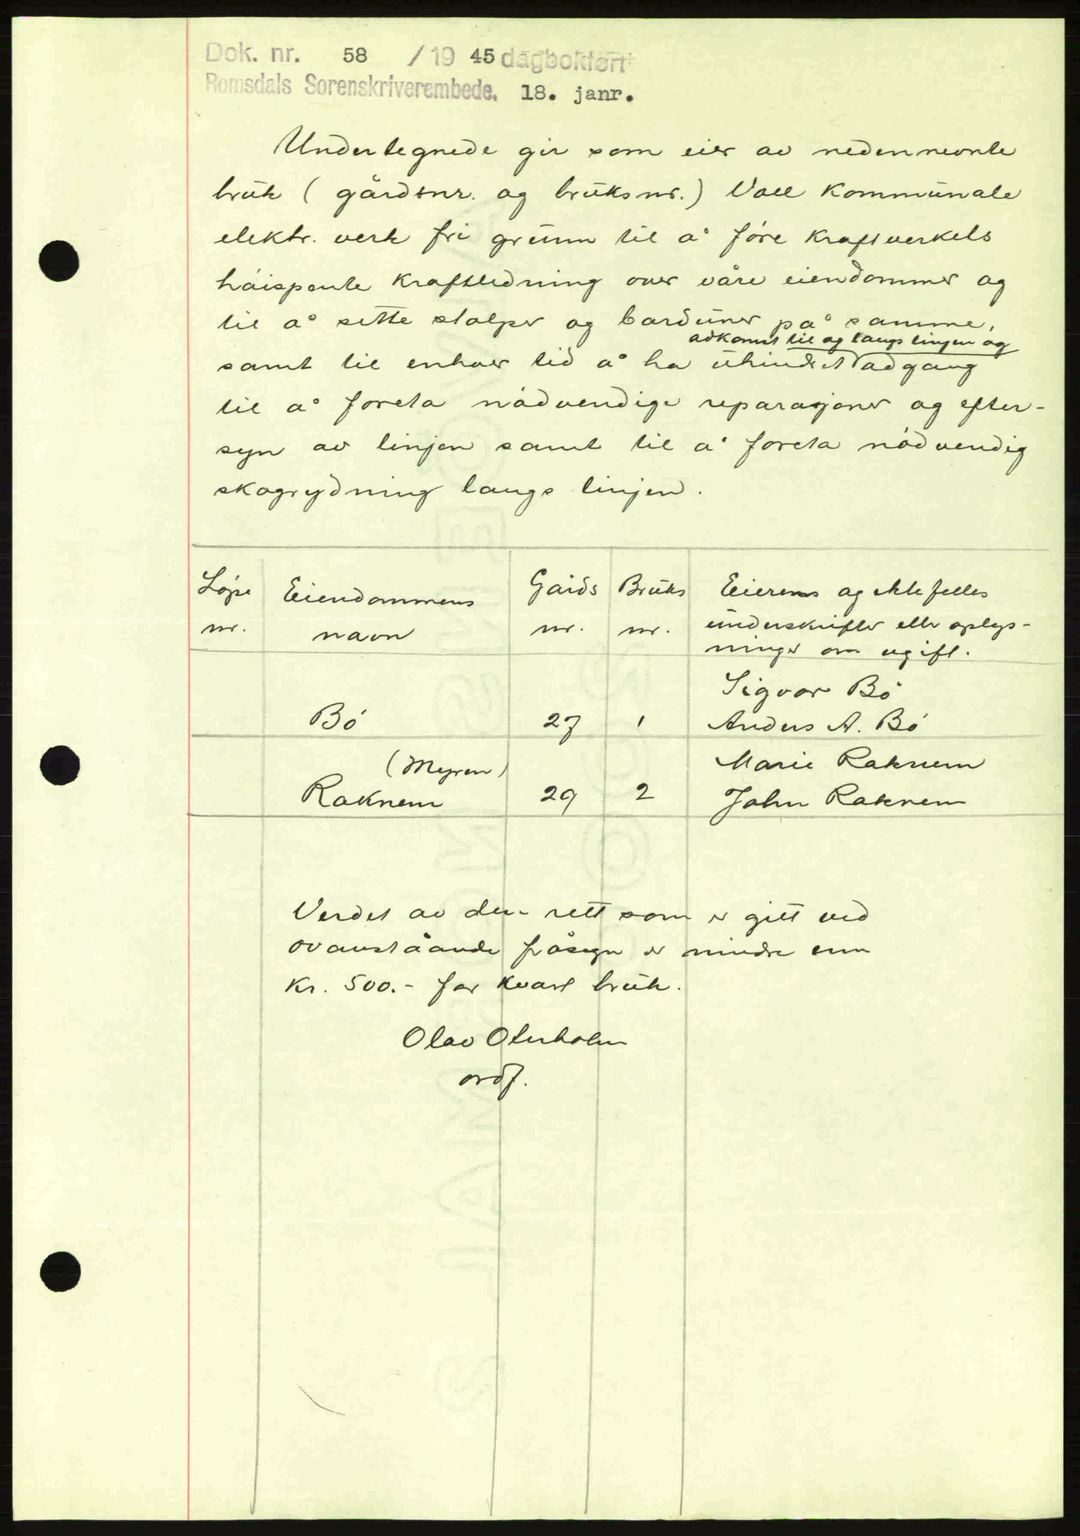 Dok. nr. 58 / 19 45 dagbokført
Romsdals Sorenskriverembede. 18. janr.
Undertegnede gir som eier av nedennevnte
bruk ( gårdsnr. og bruksnr.) Voll kommunale
elektr. verk fri grunn til å føre kraftverkets
høispente kraftledning over våre eiendommer og
til å sette stolper og barduner på samme,
adkomst til og langs linjen og
samt til enhver tid å ha uhindret adgang
til å foreta nødvendige reparasjoner og efter-
syn av linjen samt til å foreta nødvendig
skogrydning langs linjen.
Løpe Eiendommens Gards Bruks Eierens og ektefelles
nr. navn nr. nr. underskrifter eller oplys-
ninger om ugift.
Sigvor Bø
Bø 27 1 Anders A. Bø
(Myren) Marie Raknem
Raknem 29 2 John Raknem
Verdet av den rett som er gitt ved
ovanståande påsegn er mindre enn
Kr. 500.- for kvart bruk.
Olav Oterholm
ordf.